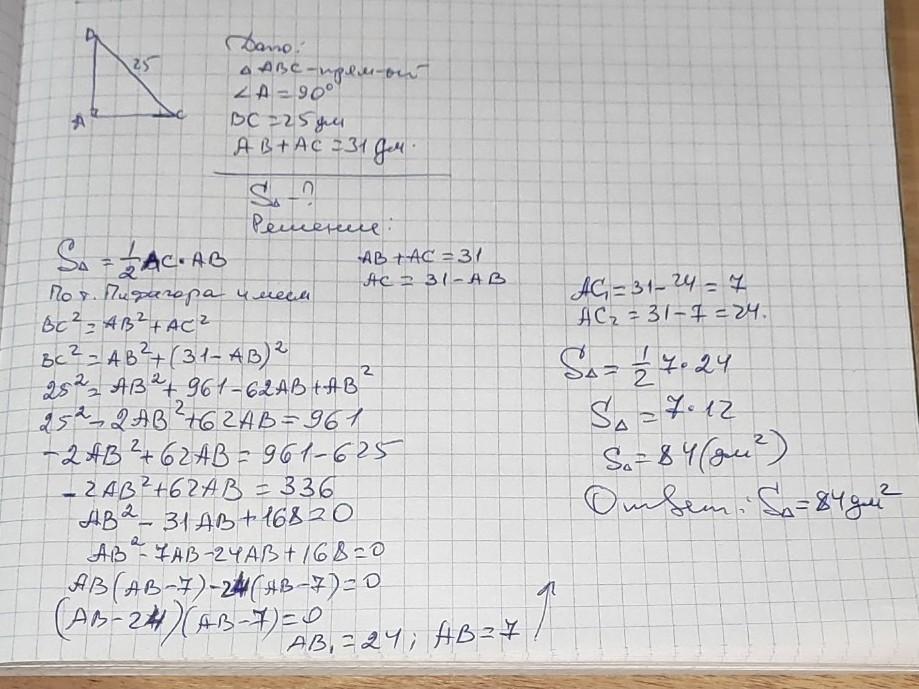 B
25
A
C
Дано:
△ ABC - прям-ой
∠A = 90°
BC = 25 дм
AB + AC = 31 дм.
S△ - ?
Решение:
S△ = 1/2 AC · AB
По т. Пифагора имеем
BC² = AB² + AC²
BC² = AB² + (31 - AB)²
25² = AB² + 961 - 62AB + AB²
25² - 2AB² + 62AB = 961
-2AB² + 62AB = 961 - 625
-2AB² + 62AB = 336
AB² - 31AB + 168 = 0
AB² - 7AB - 24AB + 168 = 0
AB(AB - 7) - 24(AB - 7) = 0
(AB - 24)(AB - 7) = 0
AB₁ = 24; AB = 7
AB + AC = 31
AC = 31 - AB
AC₁ = 31 - 24 = 7
AC₂ = 31 - 7 = 24.
S△ = 1/2 7 · 24
S△ = 7 · 12
S△ = 84 (дм²)
Ответ: S△ = 84 дм²